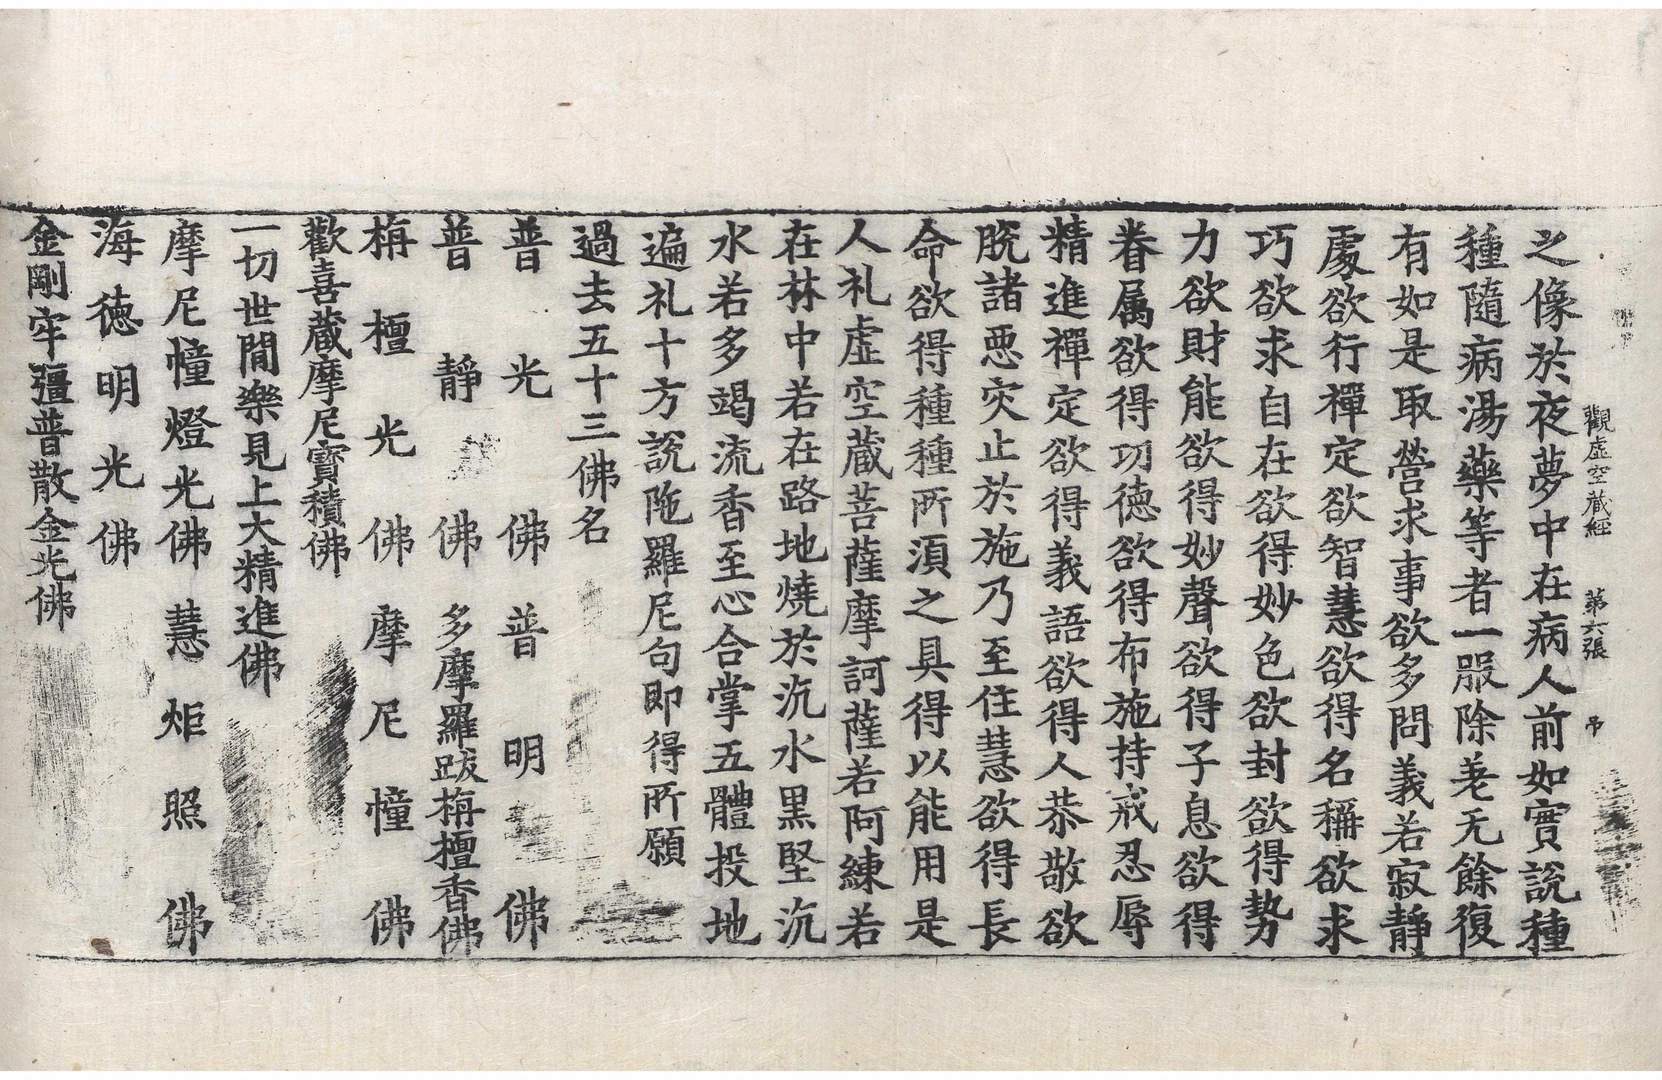 觀虛空藏經 第六張 吊
之像於夜夢中在病人前如實說種
種隨病湯藥等者一服除差无餘復
有如是取營求事欲多問義若寂靜
處欲行禪定欲智慧欲得名稱欲求
巧欲求自在欲得妙色欲封欲得勢
力欲財能欲得妙聲欲得子息欲得
眷属欲得功德欲得布施持戒忍辱
精進禪定欲得義語欲得人恭敬欲
脫諸惡灾止於施乃至住慧欲得長
命欲得種種所湏之具得以能用是
人礼虛空藏菩薩摩訶薩若阿練若
在林中若在路地燒於沉水黑堅沉
水若多竭流香至心合掌五體投地
遍礼十方說陁羅尼句即得所願
過去五十三佛名
普光佛 普明佛
普靜佛 多摩羅跋栴檀香佛
栴檀光佛 摩尼幢佛
歡喜藏摩尼寶積佛
一切世閒樂見上大精進佛
摩尼幢燈光佛 慧炬照佛
海德明光佛
金剛牢彊普散金光佛